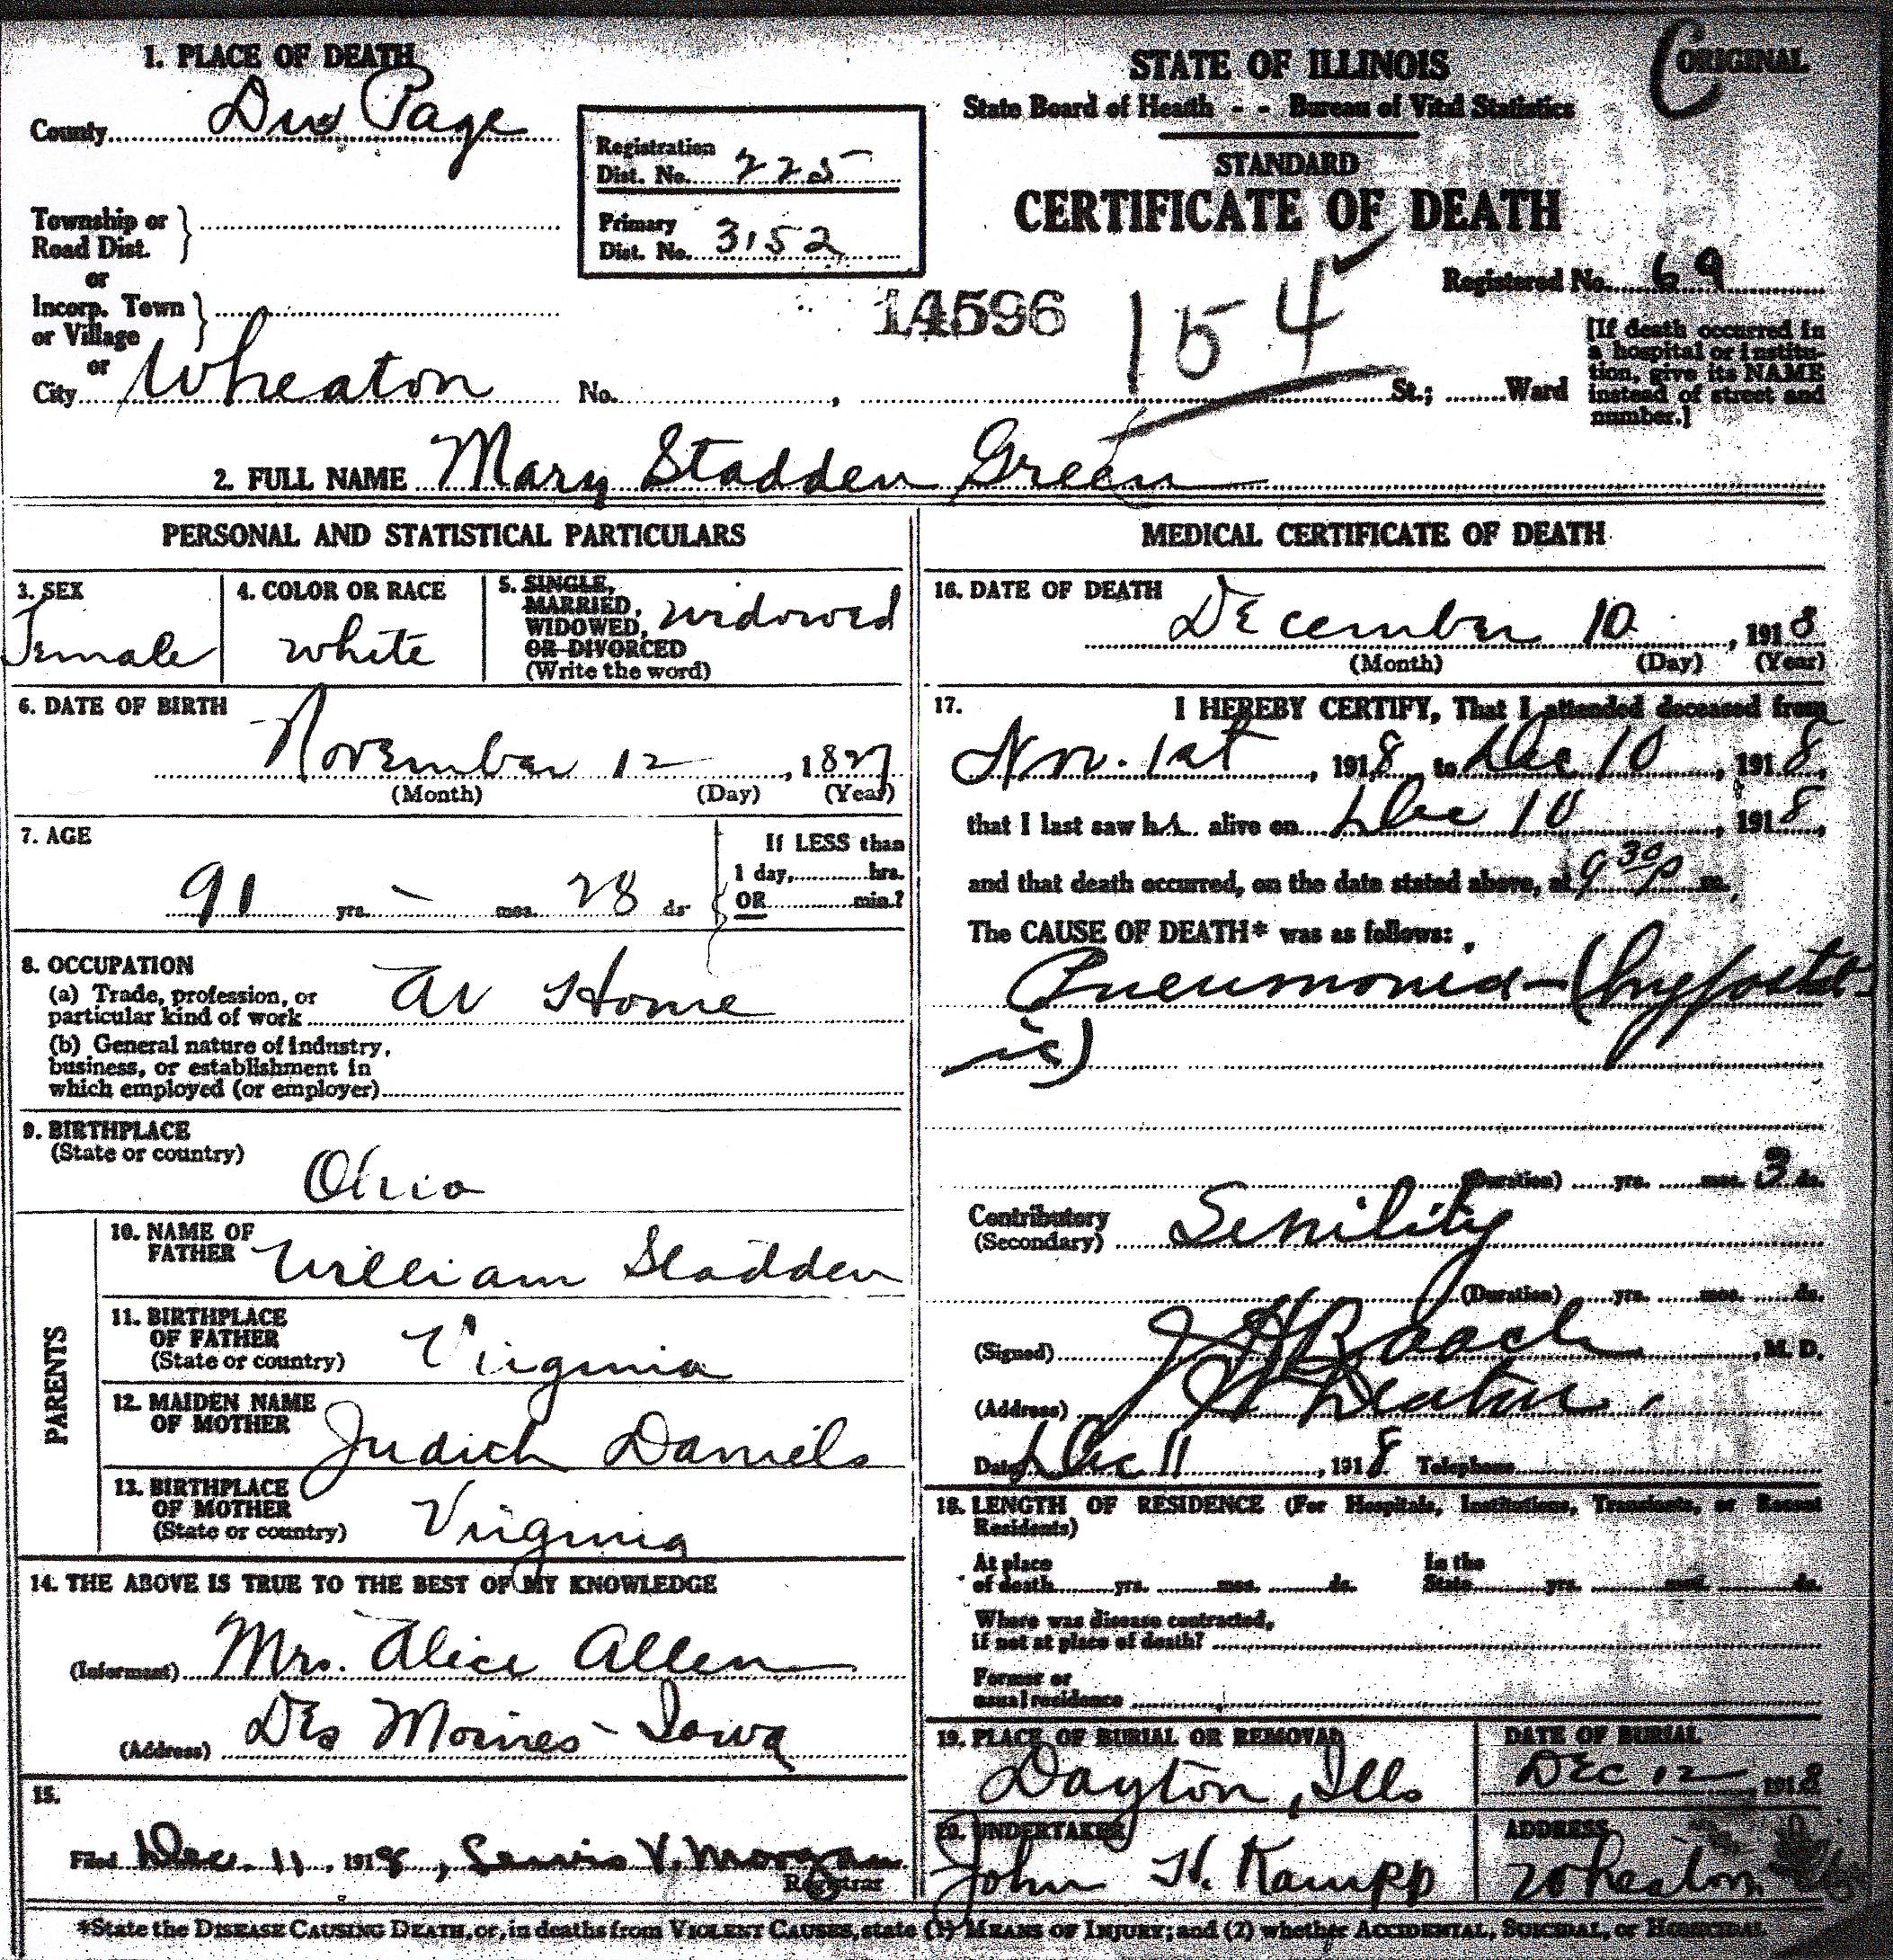 1. PLACE OF DEATH
County Du Page
Township or Road Dist.
or
Incorp. Town or Village
or
City Wheaton No. , St.; Ward
Registration Dist. No. 225
Primary Dist. No. 3152
STATE OF ILLINOIS
State Board of Health - - Bureau of Vital Statistics
STANDARD
CERTIFICATE OF DEATH
C ORIGINAL
14596
154
Registered No. 69
[If death occurred in
a hospital or institu-
tion, give its NAME
instead of street and
number.]
2. FULL NAME Mary Stadden Green
PERSONAL AND STATISTICAL PARTICULARS
3. SEX
Female
4. COLOR OR RACE
white
5. SINGLE,
MARRIED,
WIDOWED,
OR DIVORCED
(Write the word)
widowed
6. DATE OF BIRTH
November 12, 1827
(Month) (Day) (Year)
7. AGE
91 yrs. - mos. 28 ds
If LESS than
1 day, hrs.
OR min.?
8. OCCUPATION
(a) Trade, profession, or
particular kind of work At Home
(b) General nature of industry,
business, or establishment in
which employed (or employer)
9. BIRTHPLACE
(State or country)
Ohio
PARENTS
10. NAME OF
FATHER William Stadden
11. BIRTHPLACE
OF FATHER
(State or country) Virginia
12. MAIDEN NAME
OF MOTHER Judith Daniels
13. BIRTHPLACE
OF MOTHER
(State or country) Virginia
14. THE ABOVE IS TRUE TO THE BEST OF MY KNOWLEDGE
(Informant) Mrs. Alice Allen
(Address) Des Moines - Iowa
15.
Filed Dec. 11, 1918, Lewis V. Morgan
Registrar
MEDICAL CERTIFICATE OF DEATH
16. DATE OF DEATH
December 10, 1918
(Month) (Day) (Year)
17. I HEREBY CERTIFY, That I attended deceased from
Nov. 1st, 1918, to Dec 10, 1918,
that I last saw her alive on Dec 10, 1918,
and that death occurred, on the date stated above, at 9 30 p m.
The CAUSE OF DEATH* was as follows:
Pneumonia - (hypostat-
ic)
(Duration) yrs. mos. 3 ds.
Contributory
(Secondary) Senility
(Duration) yrs. mos. ds.
(Signed) J H Roach, M. D.
(Address) Wheaton.
Date Dec 11, 1918 Telephone
18. LENGTH OF RESIDENCE (For Hospitals, Institutions, Transients, or Recent
Residents)
At place
of death yrs. mos. ds.
In the
State yrs. mos. ds.
Where was disease contracted,
if not at place of death?
Former or
usual residence
19. PLACE OF BURIAL OR REMOVAL
Dayton, Ills
DATE OF BURIAL
Dec 12, 1918
20. UNDERTAKER
John H. Kampp
ADDRESS
Wheaton
*State the DISEASE CAUSING DEATH, or, in deaths from VIOLENT CAUSES, state (1) MEANS OF INJURY; and (2) whether ACCIDENTAL, SUICIDAL, or HOMICIDAL